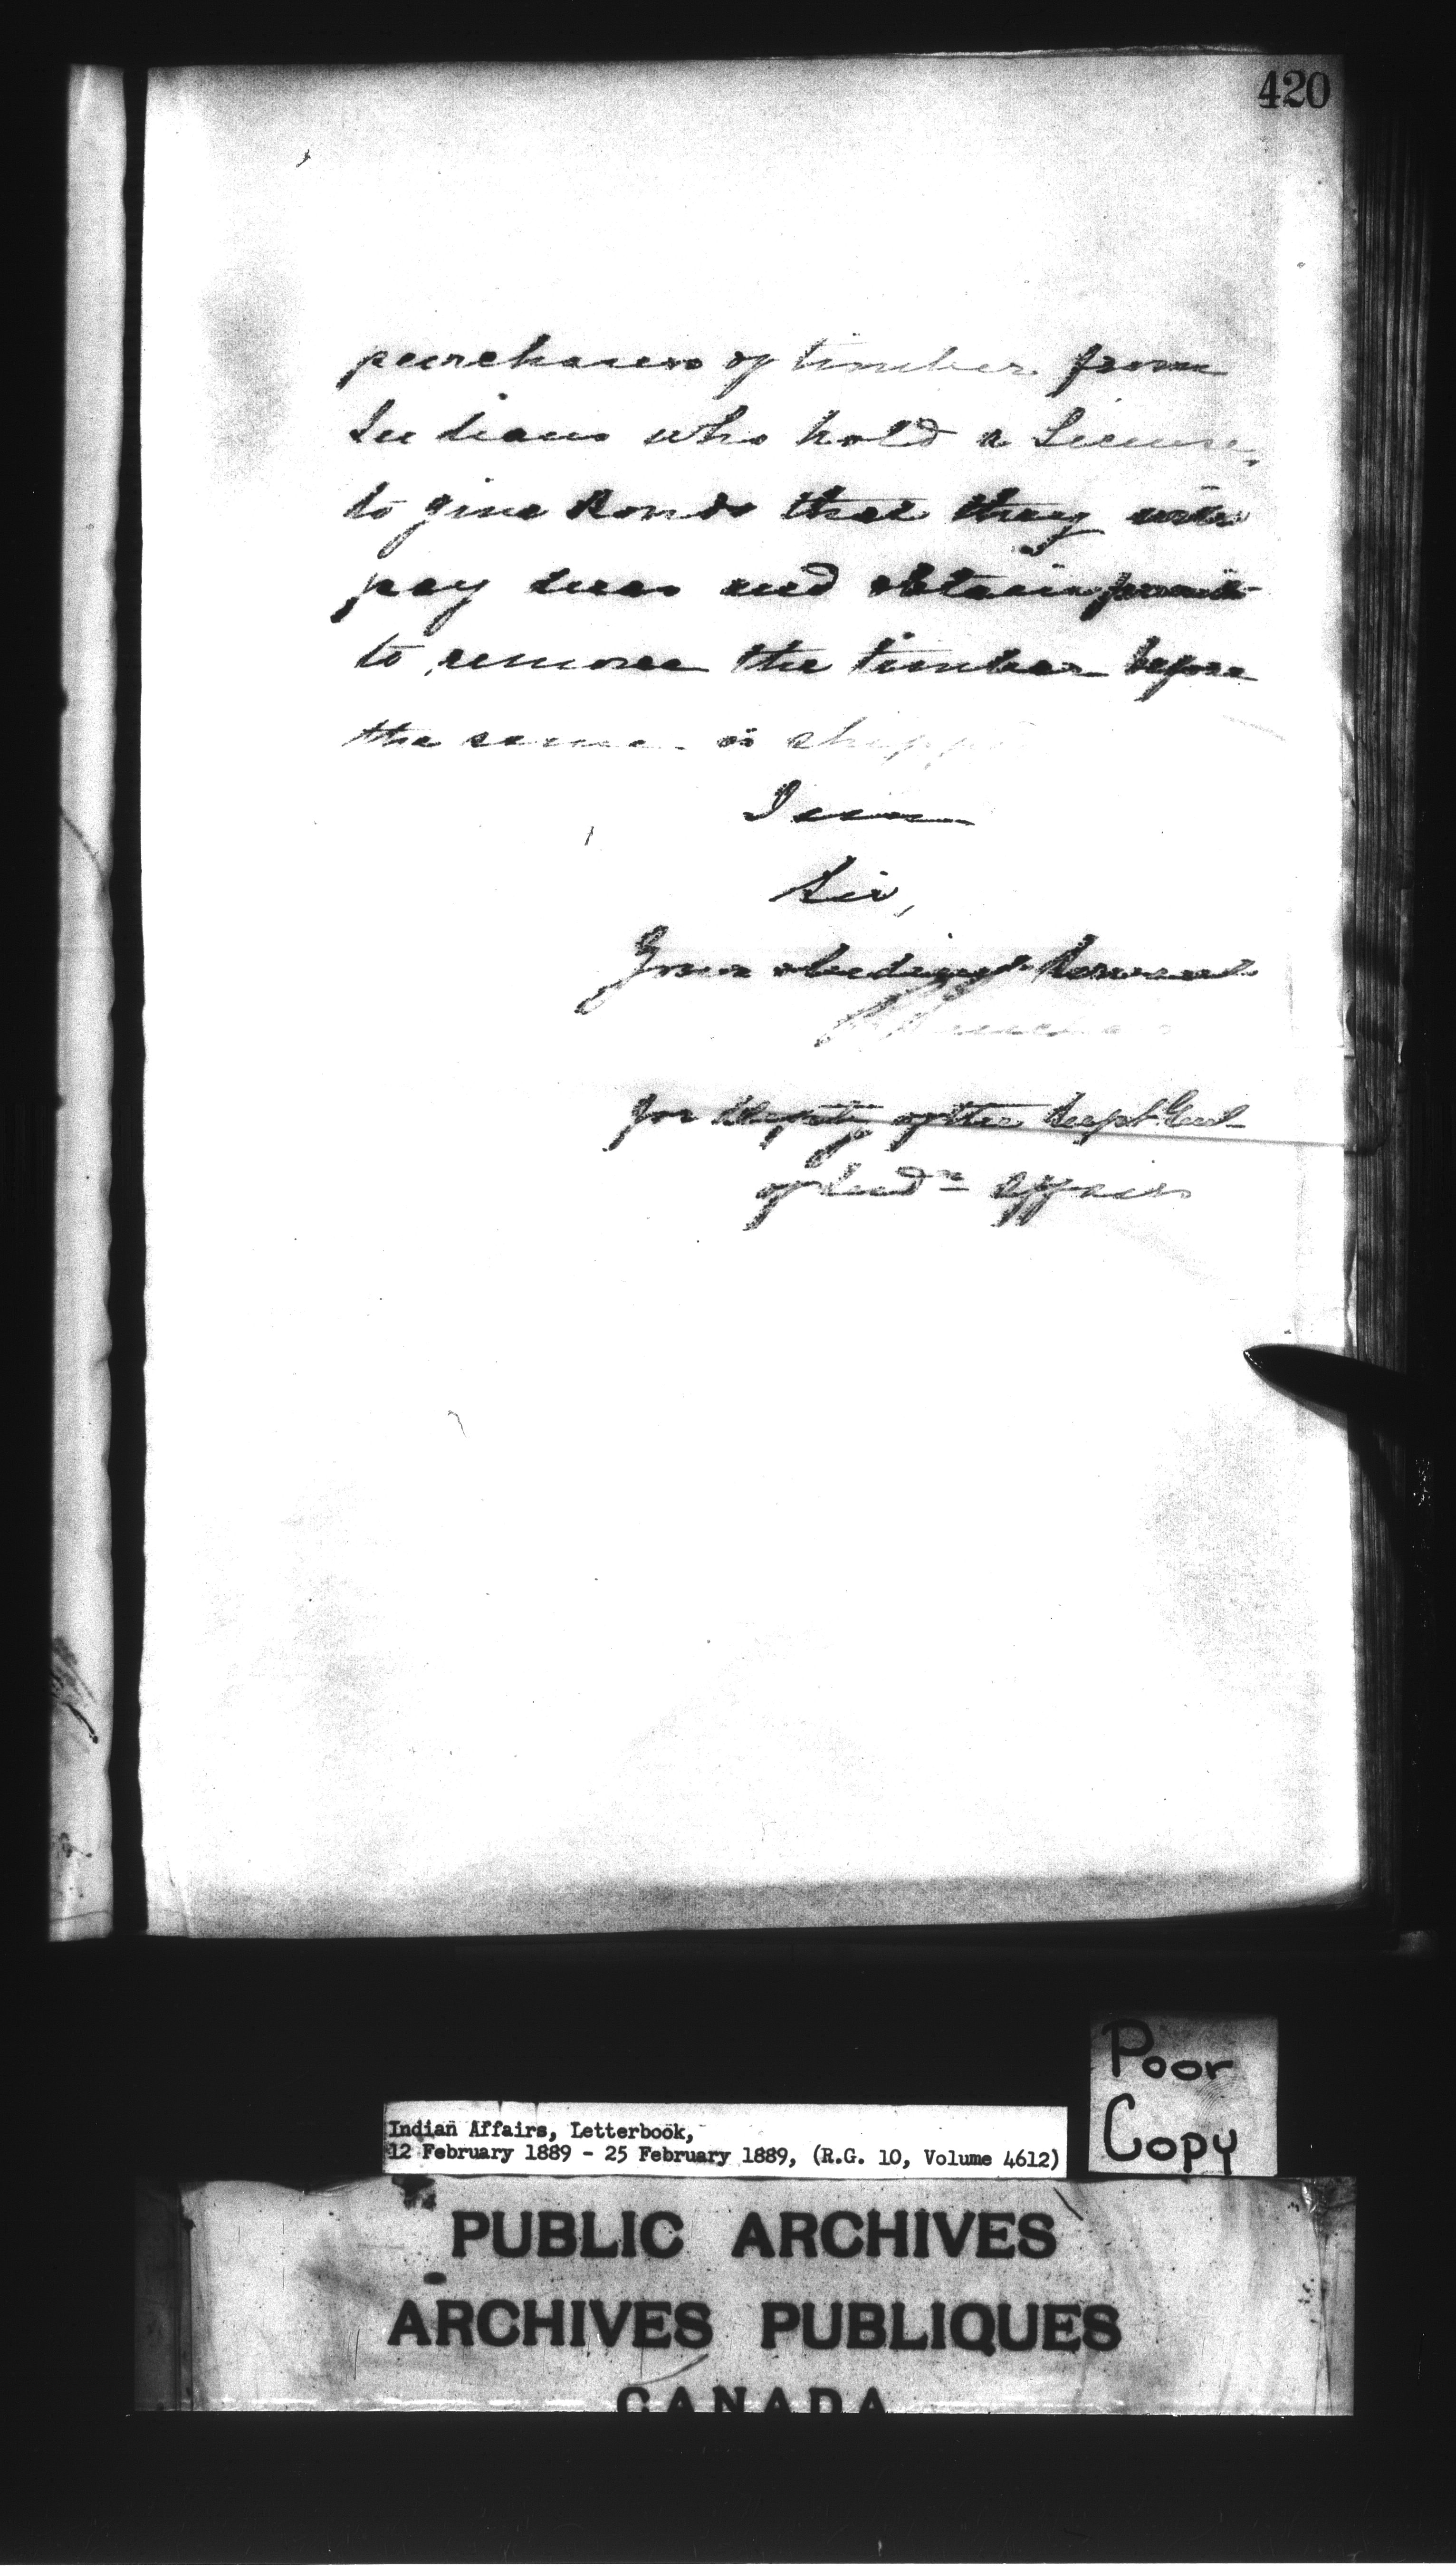 420
purchasers of timber from
Indians who hold a License,
to give Bonds that they will
pay dues and obtain permit
to remove the timber before
the same is shipped
I am
Sir,
Your obedient Servant
for Deputy of the Supt. Genl
of Indn Affairs
Poor
Copy
Indian Affairs, Letterbook,
12 February 1889 - 25 February 1889, (R.G. 10, Volume 4612)
PUBLIC ARCHIVES
ARCHIVES PUBLIQUES
CANADA